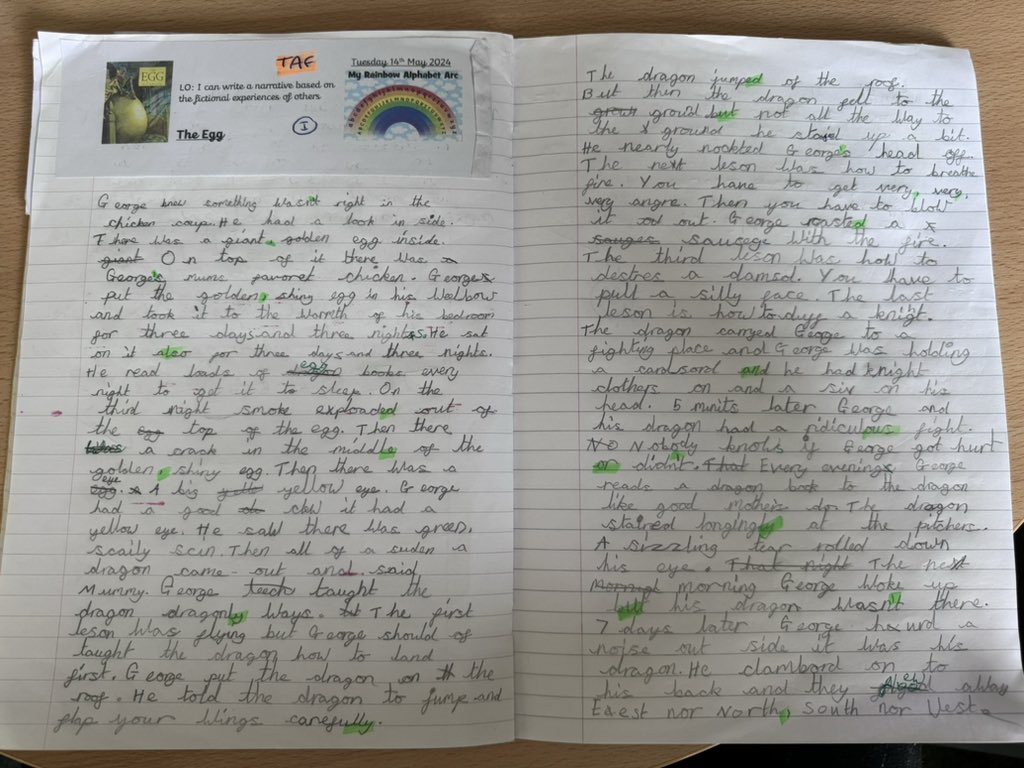 EGG
TAF
LO: I can write a narrative based on
the fictional experiences of others
The Egg
I
Tuesday 14th May 2024
My Rainbow Alphabet Arc
George knew something wasn't right in the
chicken coup. He had a look in side.
There was a giant, golden egg inside.
giant On top of it there was a
George's mums favoret chicken. Georges
put the golden, shiny egg in his Welbow
and took it to the warmth of his bedroom
for three days and three nights. He sat
on it also for three days and three nights.
He read loads of dragon egg books every
night to get it to sleep. On the
third night smoke exploaded out of
the egg top of the egg. Then there
was a crack in the middle of the
golden, shiny egg. Then there was a
egg. eye A big yell yellow eye. George
had a good clew it had a
yellow eye. He saw there was green,
scaily scin. Then all of a suden a
dragon came out and said
Mummy. George teach taught the
dragon dragonly ways. The first
leson was flying but George should of
taught the dragon how to land
first. George put the dragon on the
roof. He told the dragon to jump and
flap your wings carefully.
The dragon jumped of the roof.
But then the dragon fell to the
ground but not all the way to
the ground he staid up a bit.
He nearly nockted George's head off.
The next leson was how to breathe
fire. You have to get very, very,
very angre. Then you have to blow
it out. George rousted a
sauges saucege with the fire.
The third leson was how to
destres a damsol. You have to
pull a silly face. The last
leson is how to duf a knigt.
The dragon carryed George to a
fighting place and George was holding
a card sord and he had knight
clothers on and a siv on his
head. 5 minits later George and
his dragon had a ridiculous fight.
NO Nobody knows if George got hurt
or didn't. That Every evening George
reads a dragon book to the dragon
like good mothers do. The dragon
staired longingly at the pitchers.
A sizzling tear rolled down
his eye. That night The next
morning George woke up
but his dragon wasn't there.
7 days later George heurd a
noise out side it was his
dragon. He clambord on to
his back and they away
Edest nor North, South nor Vest.